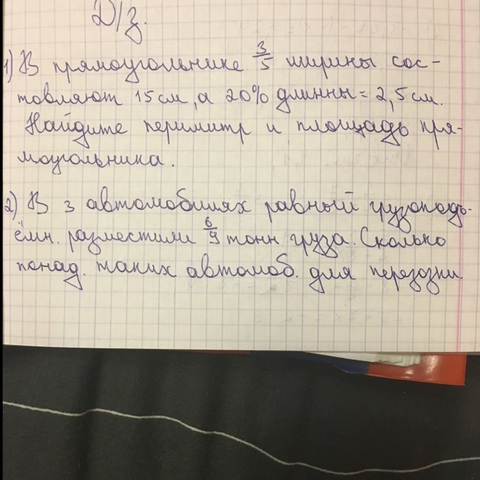 Д/з.
1) В прямоугольнике 3/5 ширины сос-
товляют 15 см, а 20% длинны = 2,5 см.
Найдите периметр и площадь пря-
моугольника.
2) В 3 автомобилях равный грузоподъ-
ёмн. разместили 6/9 тонн груза. Сколько
понад. таких автомоб. для перезозки